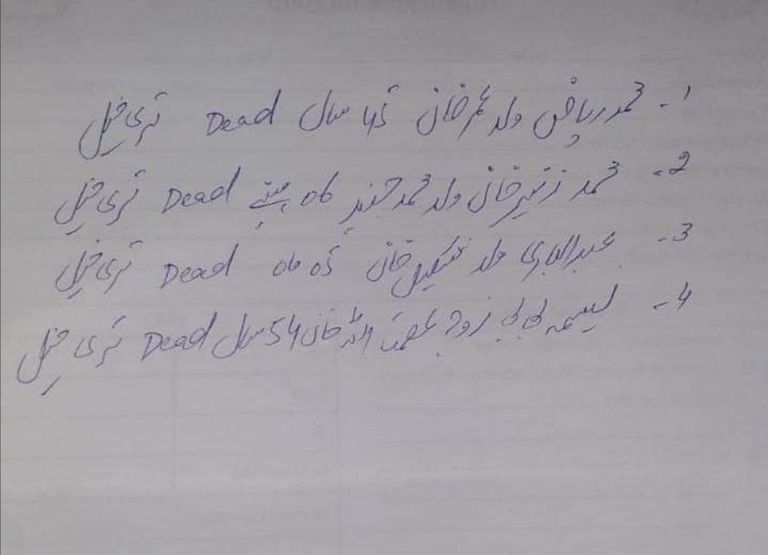 1- محمد ریاض ولد عمر خان 45 سال Dead تری خیل
2- محمد زبیر خان ولد محمد جنید Dead تری خیل
3- عبدالباری ولد شکیل خان ماہ Dead تری خیل
4- بی بی زوجہ عصمت اللہ خان 54 سال Dead تری خیل